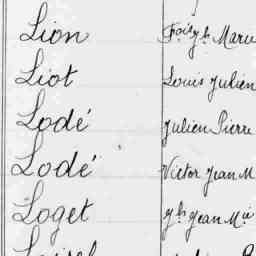 Lion Fçois Yves Marie
Liot Louis Julien
Lodé Julien Pierre
Lodé Victor Jean M
Loget Yves Jean Mie